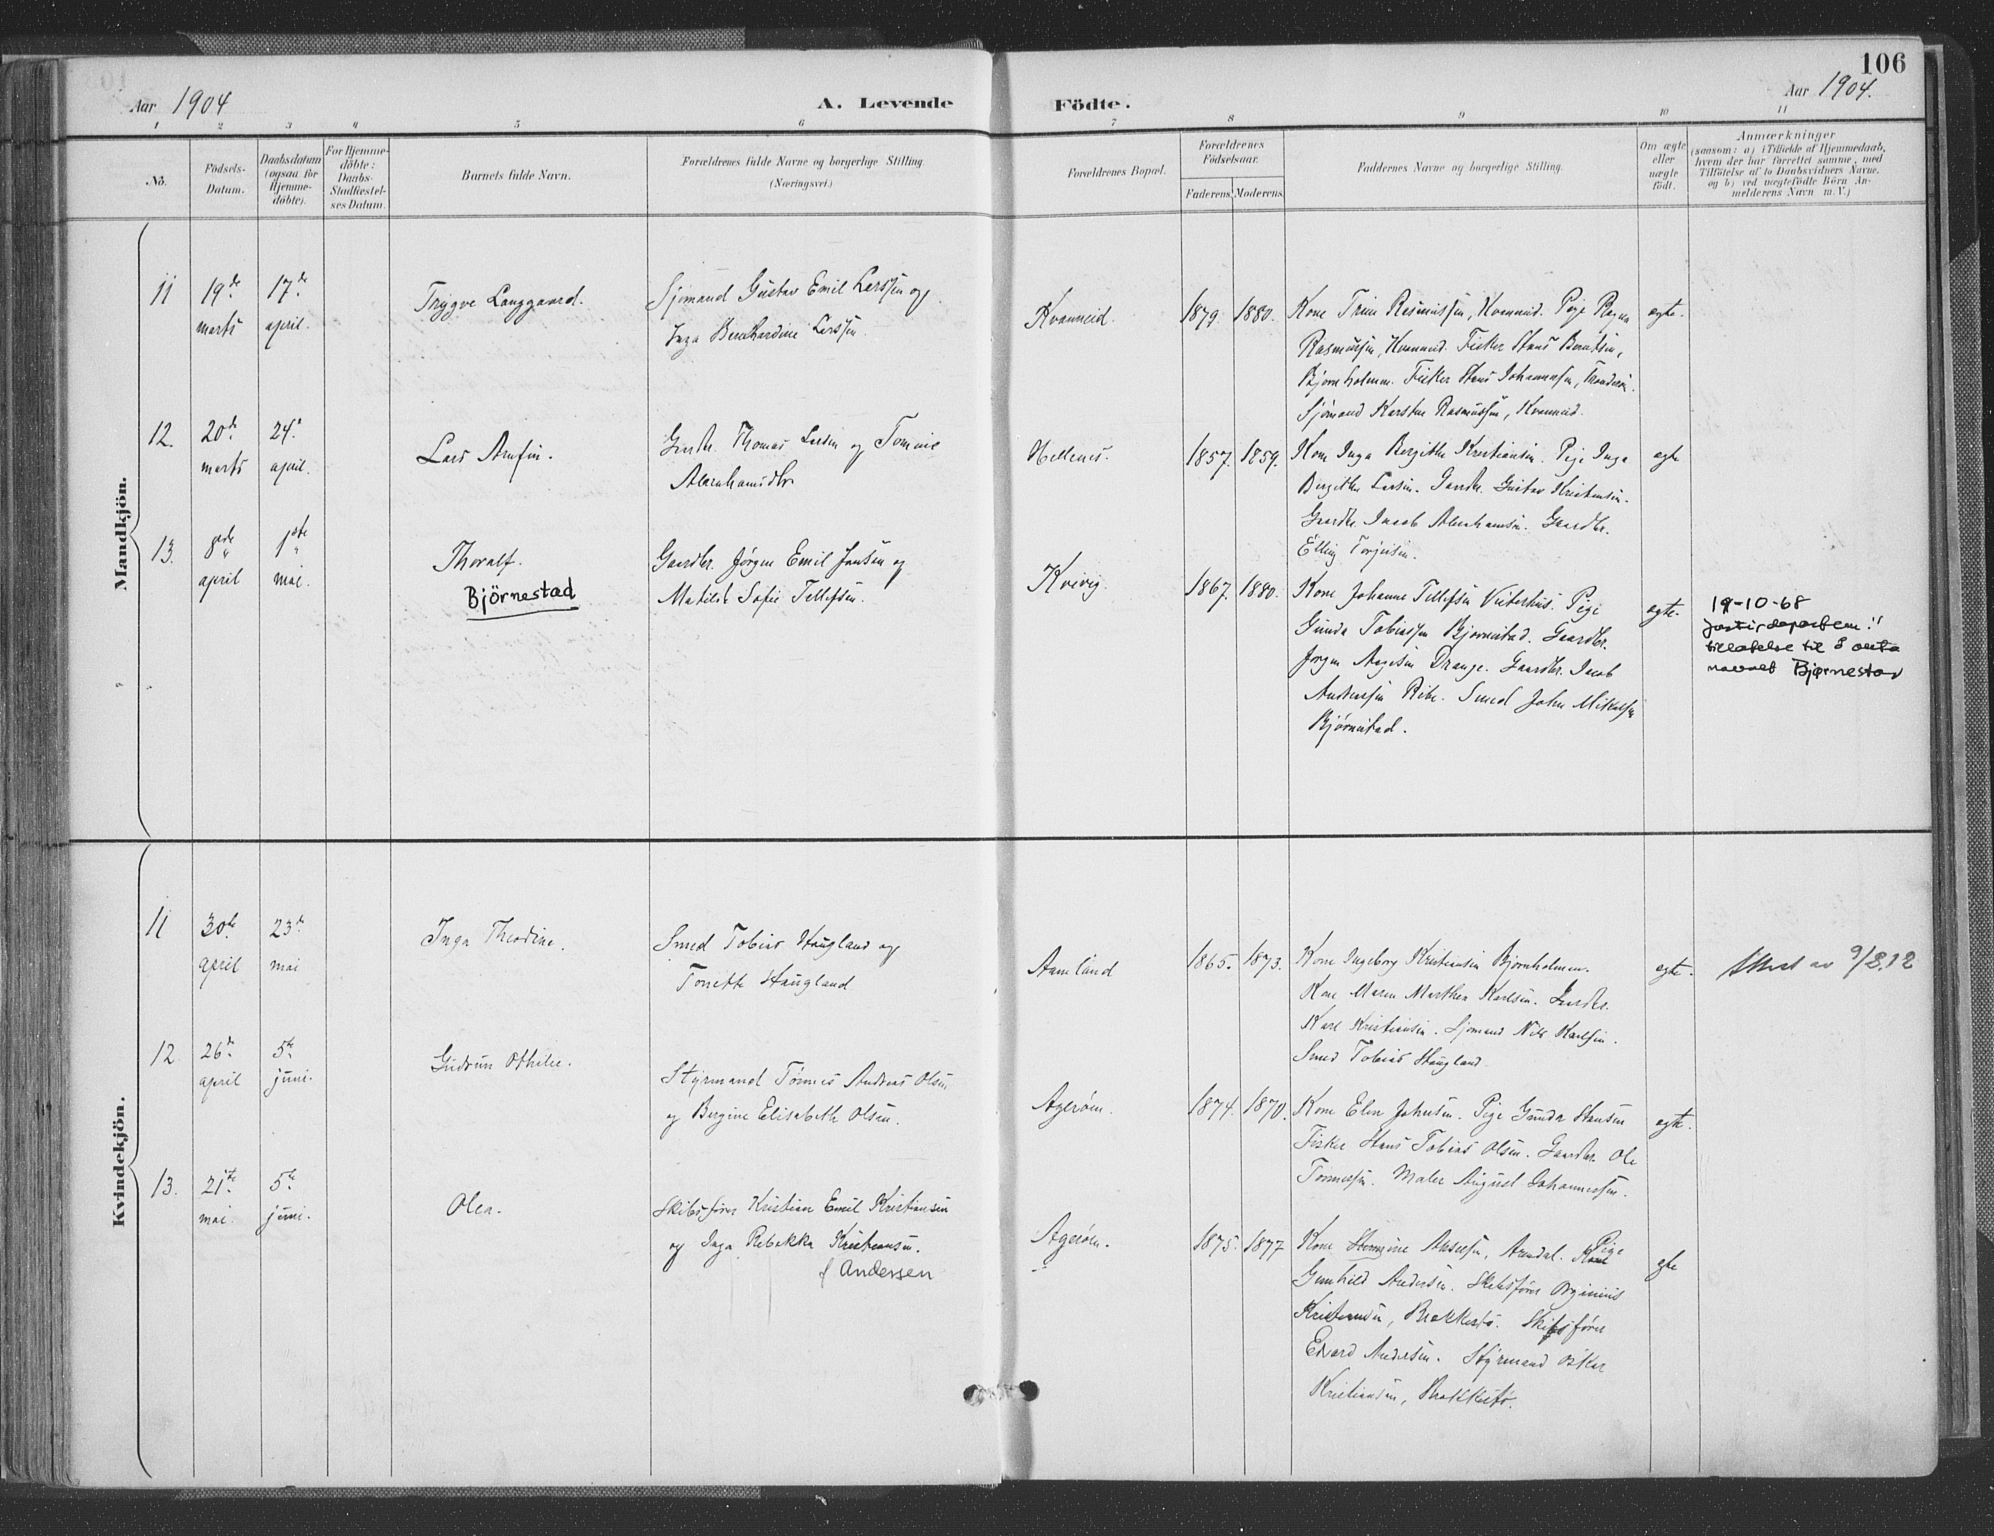 106
Aar 1904
A. Levende
Födte.
Aar 1904.
1 2 3 4 5 6 7 8 9 10 11
No.
Födsels-
Datum.
Daabsdatum
(ogsaa for
Hjemme-
döbte).
For Hjemme-
döbte:
Daabs-
Stadfæstel-
ses Datum.
Barnets fulde Navn.
Forældrenes fulde Navne og borgerlige Stilling
(Næringsvei.)
Forældrenes Bopæl.
Forældrenes
Födselsaar.
Faderens.
Moderens.
Faddernes Navne og borgerlige Stilling.
Om ægte
eller
uægte
födt.
Anmærkninger
(saasom: a) i Tilfælde af Hjemmedaab,
hvem der har forrettet samme, med
Tilföielse af to Daabsvidners Navne,
og b) ved uægtefödte Börn An-
melderens Navn m. V.)
Mandkjön.
11
19de
marts
17de
april.
Trygve Langgaard.
Sjømand Gustav Emil Larssen og
Inga Bernhardine Larssen
Kvanneid.
1879. 1880.
Kone Trine Rasmussen, Kvanneid. Pige Ragna
Rasmussen, Kvanneid. Fisker Hans Berntsen,
Bjørnholmen. Fisker Hans Johannesen,
Sjømand Karsten Rasmussen, Kvanneid.
egte.
12.
20de
marts
24.
april.
Lars Arnfin.
Gardbr. Thomas Larsen og Tomine
Abrahamsdtr
Hellenes.
1857. 1859.
Kone Inga Bergithe Kristiansen. Pige Inga
Bergithe Larsen. Gardbr. Gustav Kristensen.
Gaardbr. Jacob Abrahamsen. Gaardbr.
Elling Torjusen.
egte
13.
april
1ste
mai.
Thoralf.
Björnestad
Gaardbr. Jørgen Emil Jansen og
Matilde Sofie Tellefsen.
Kvivig.
1867. 1880.
Kone Johanne Tellefsen Vesterhus. Pige
Gunda Tobiassen Bjørnestad. Gaardbr.
Jørgen Aagesen Drange. Gaardbr. Jacob
Andreassen Ribe. Smed John Mikalsen
Bjørnestad.
egte.
19-10-68
tillatelse til å anta
navnet Bjørnestad
Kvindekjön.
11
30te
april
23de
mai
Inga Theodine.
Smed Tobias Haugland og
Tonette Haugland
Aamland
1865. 1873.
Kone Ingeborg Kristiansen Bjørnholmen.
Kone Maren Marthea Karlsen. Gardbr.
Karl Kristiansen. Sjømand Nils Karlsen.
Smed Tobias Haugland.
egte.
Attest av 9/8.12
12
26de
april
5te
juni.
Gudrun Othilie.
Styrmand Tønnes Andreas Olsen
og Bergine Elisabeth Olsen.
Agerøen.
1874. 1870.
Kone Elen Johnsen. Pige Gunda Hansen
Fisker Hans Tobias Olsen. Gaardbr. Ole
Tønnessen. Maler August Johannessen.
egte.
13.
21de
mai.
5te
juni.
Olea.
Skibsfører Kristian Emil Kristiansen
og Inga Rebekka Kristiansen.
f Andersen
Agerøen.
1875. 1877
Kone Hermine Axelsen, Arendal. Pige
Gunhild Andersen. Skibsfører
Kristiansen, Brekkestø. Skibsfører
Edvard Andersen. Styrmand Oskar
Kristiansen, Brekkestø.
egte